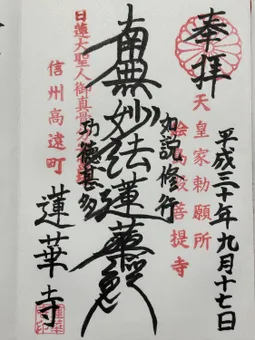 奉拝
平成三十年九月十七日
天皇家勅願所
絵島段菩提寺
如説修行
南無妙法蓮華経
功徳甚多
日蓮大聖人御真骨
信州高遠町
蓮華寺